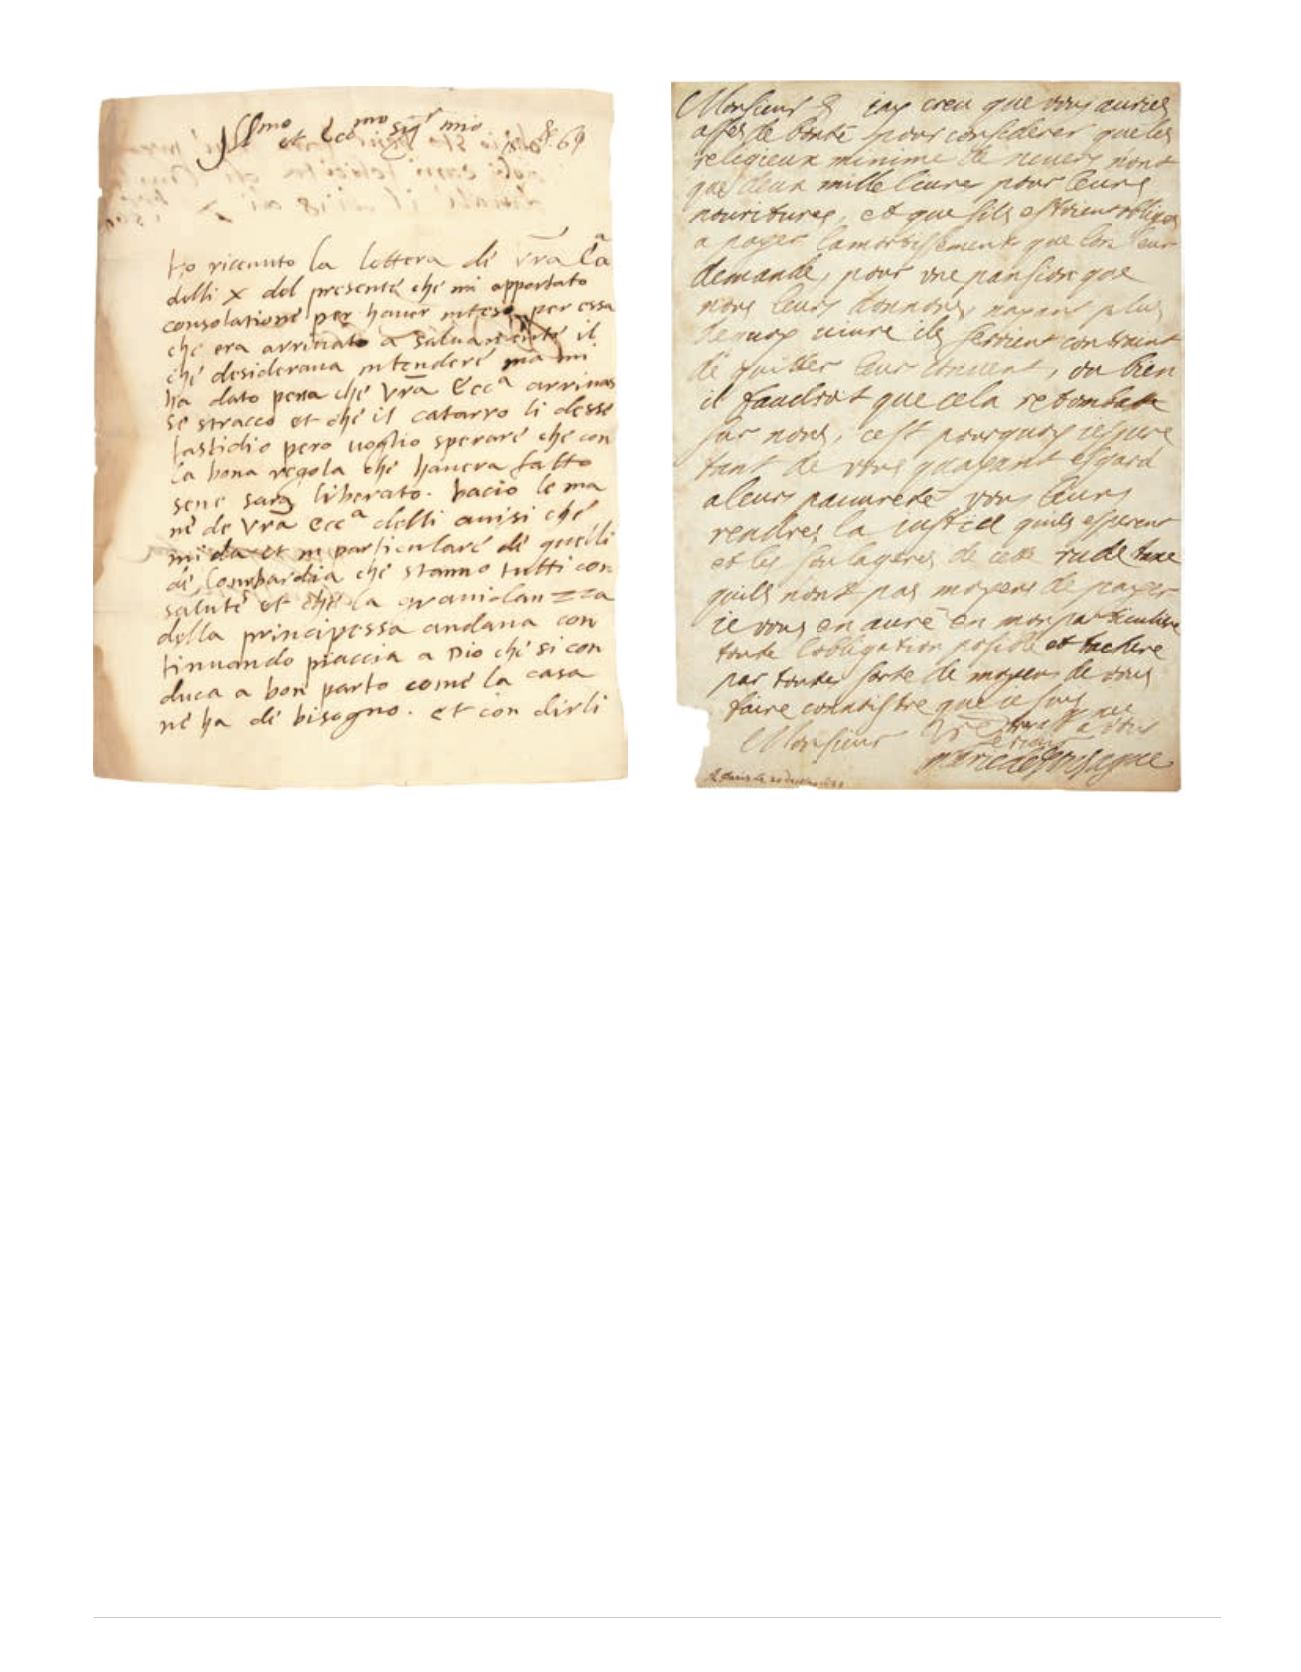 Ill.mo et Ecc.mo sig.r mio
Ho riceuuto la lettera di vra Ecc.a
delli X del presente che mi apportato
consolatione per hauer inteso per essa
che era arriuato a saluamente il
che desideraua intendere ma mi
ha dato pena che vra Ecc.a arriuas
se stracco et che il catarro li desse
fastidio pero uoglio sperare che con
la bona regola che hauera fatto
sene sara liberato. bacio le ma
ne de vra Ecc.a delli auisi che
mi da et in particulare di quelli
di Lombardia che stanno tutti con
salute et che la grauidanzza
della principessa andaua con
tinuando piaccia a Dio che si con
duca a bon parto come la casa
ne ha di bisogno. et con dirli
Monsieur iay creu que vous auries
asses de bonte pour considerer que les
religieux minime de neuers nont
que deux mille liures pour leurs
nouritures, et que sils estoient obliges
a payer lamortissement que lon leur
demande, pour vne pansion que
nous leurs donnons, nayant plus
dequoy uiure ils seroient constraint
de quitter leur couuent, ou bien
il faudroit que cela retombast
sur nous, cest pourquoy iespere
tant de vous quayant esgard
a leurs pauurete vous leurs
rendres la iustice quils esperent
et les soulageres de cette rude taxe
quils nont pas moyens de payer
ie vous en aure en mon particulier
toute lobligation posible et tachere
par toutes sorte de moyens de vous
faire connoistre que ie suis
Monsieur
marie de gonsague